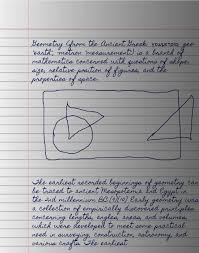 Geometry (from the Ancient Greek: geo
"earth", metron "measurement) is a branch of
mathematics concerned with questions of shape,
size, relative position of figures, and the
properties of space.
The earliest recorded beginnings of geometry can
be traced to ancient Mesopotamia and Egypt in
the 2nd millennium BC. Early geometry was
a collection of empirically discovered principles
concerning lengths, angles, areas, and volumes,
which were developed to meet some practical
need in surveying, construction, astronomy, and
various crafts. The earliest